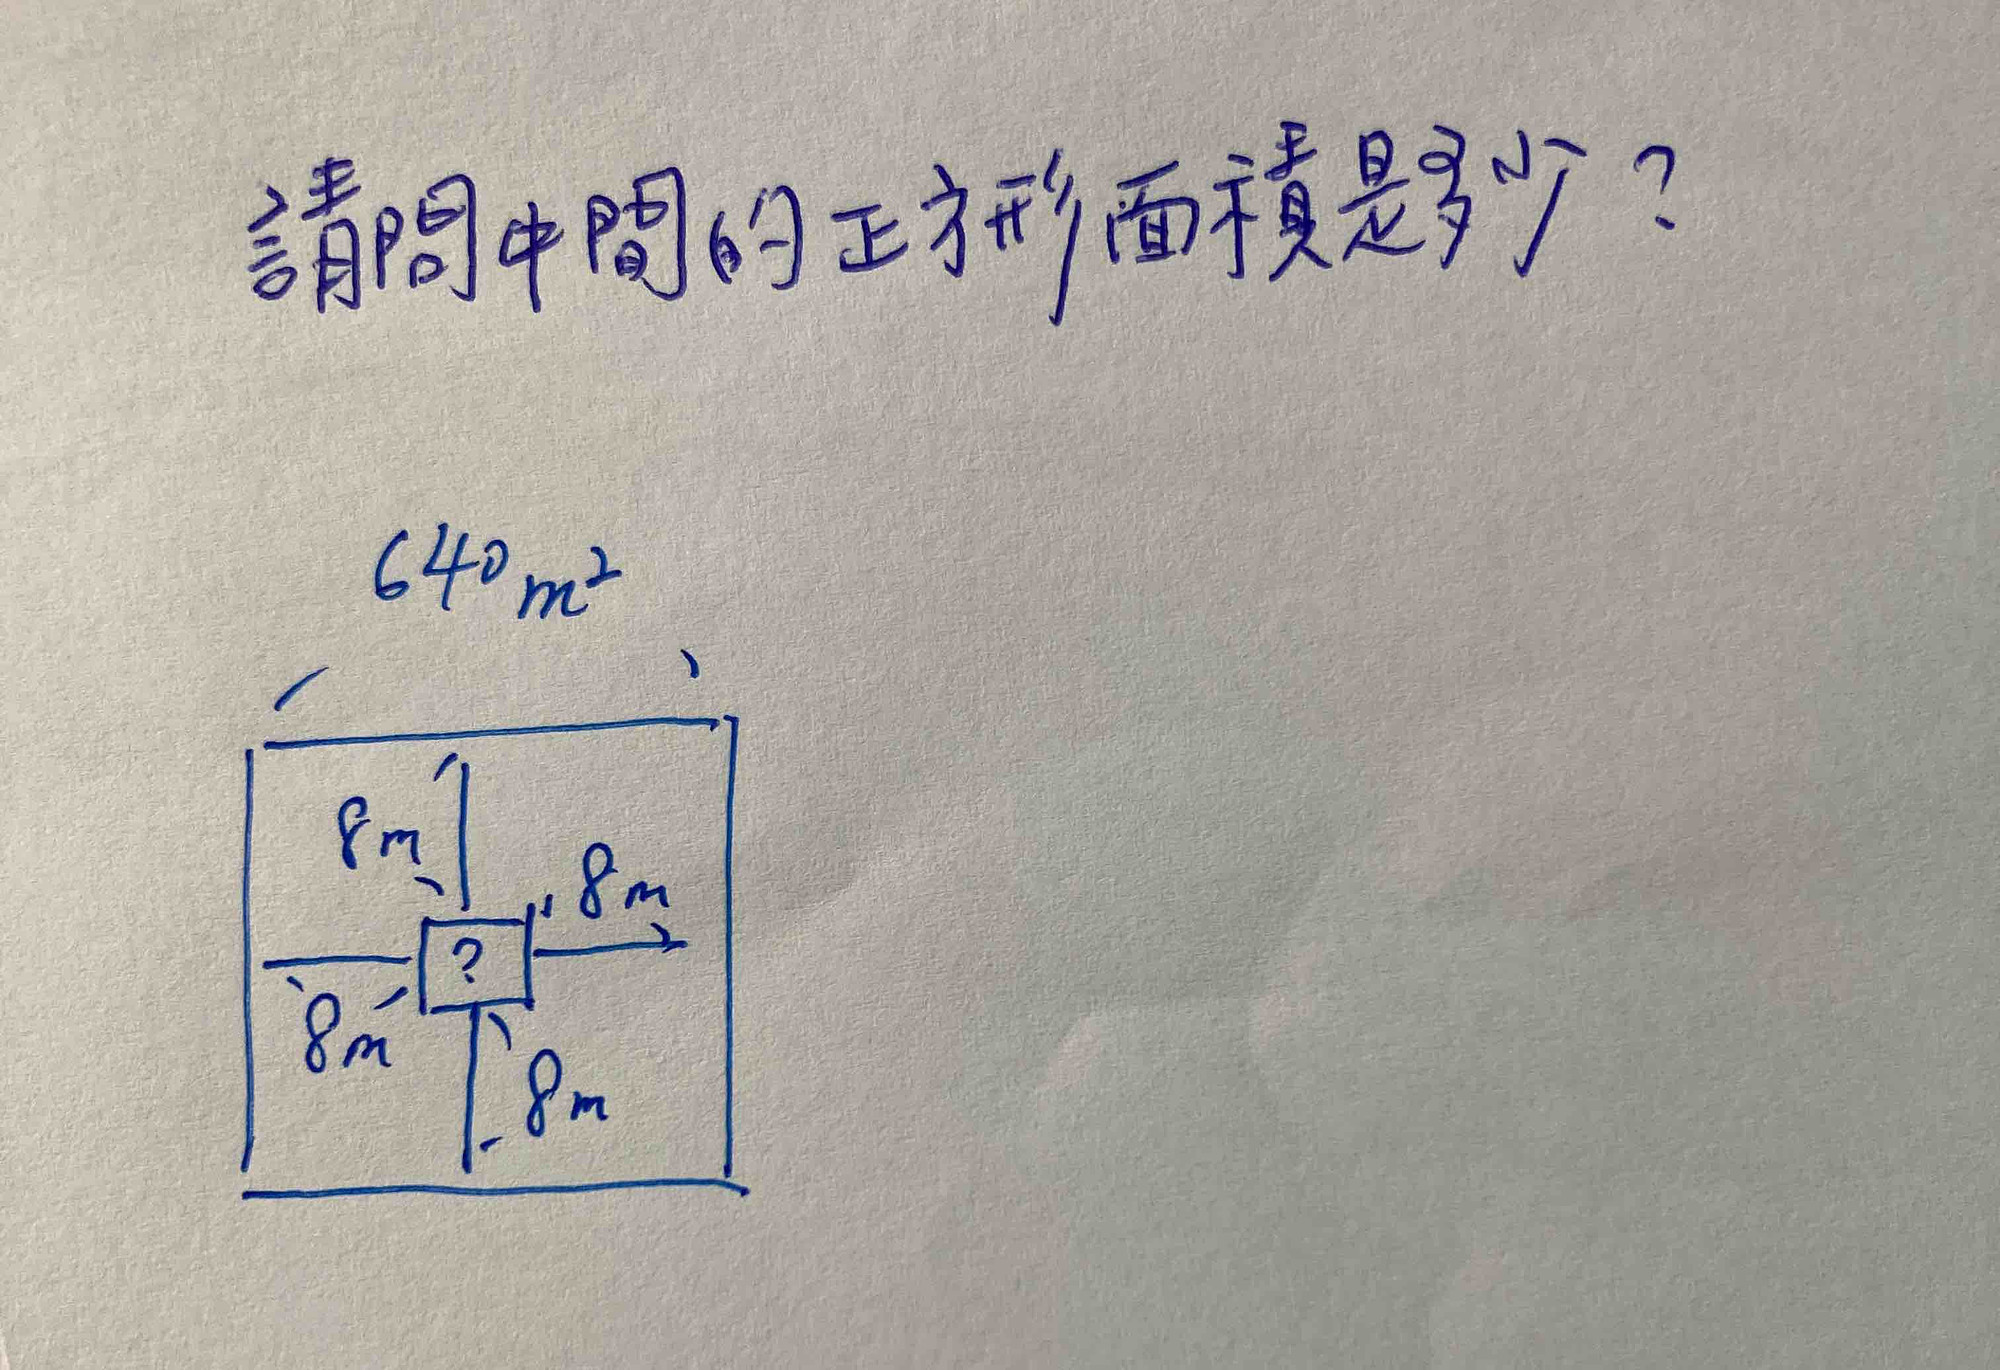 請問中間的正方形面積是多少?
640m²
8m
8m
?
8m
8m